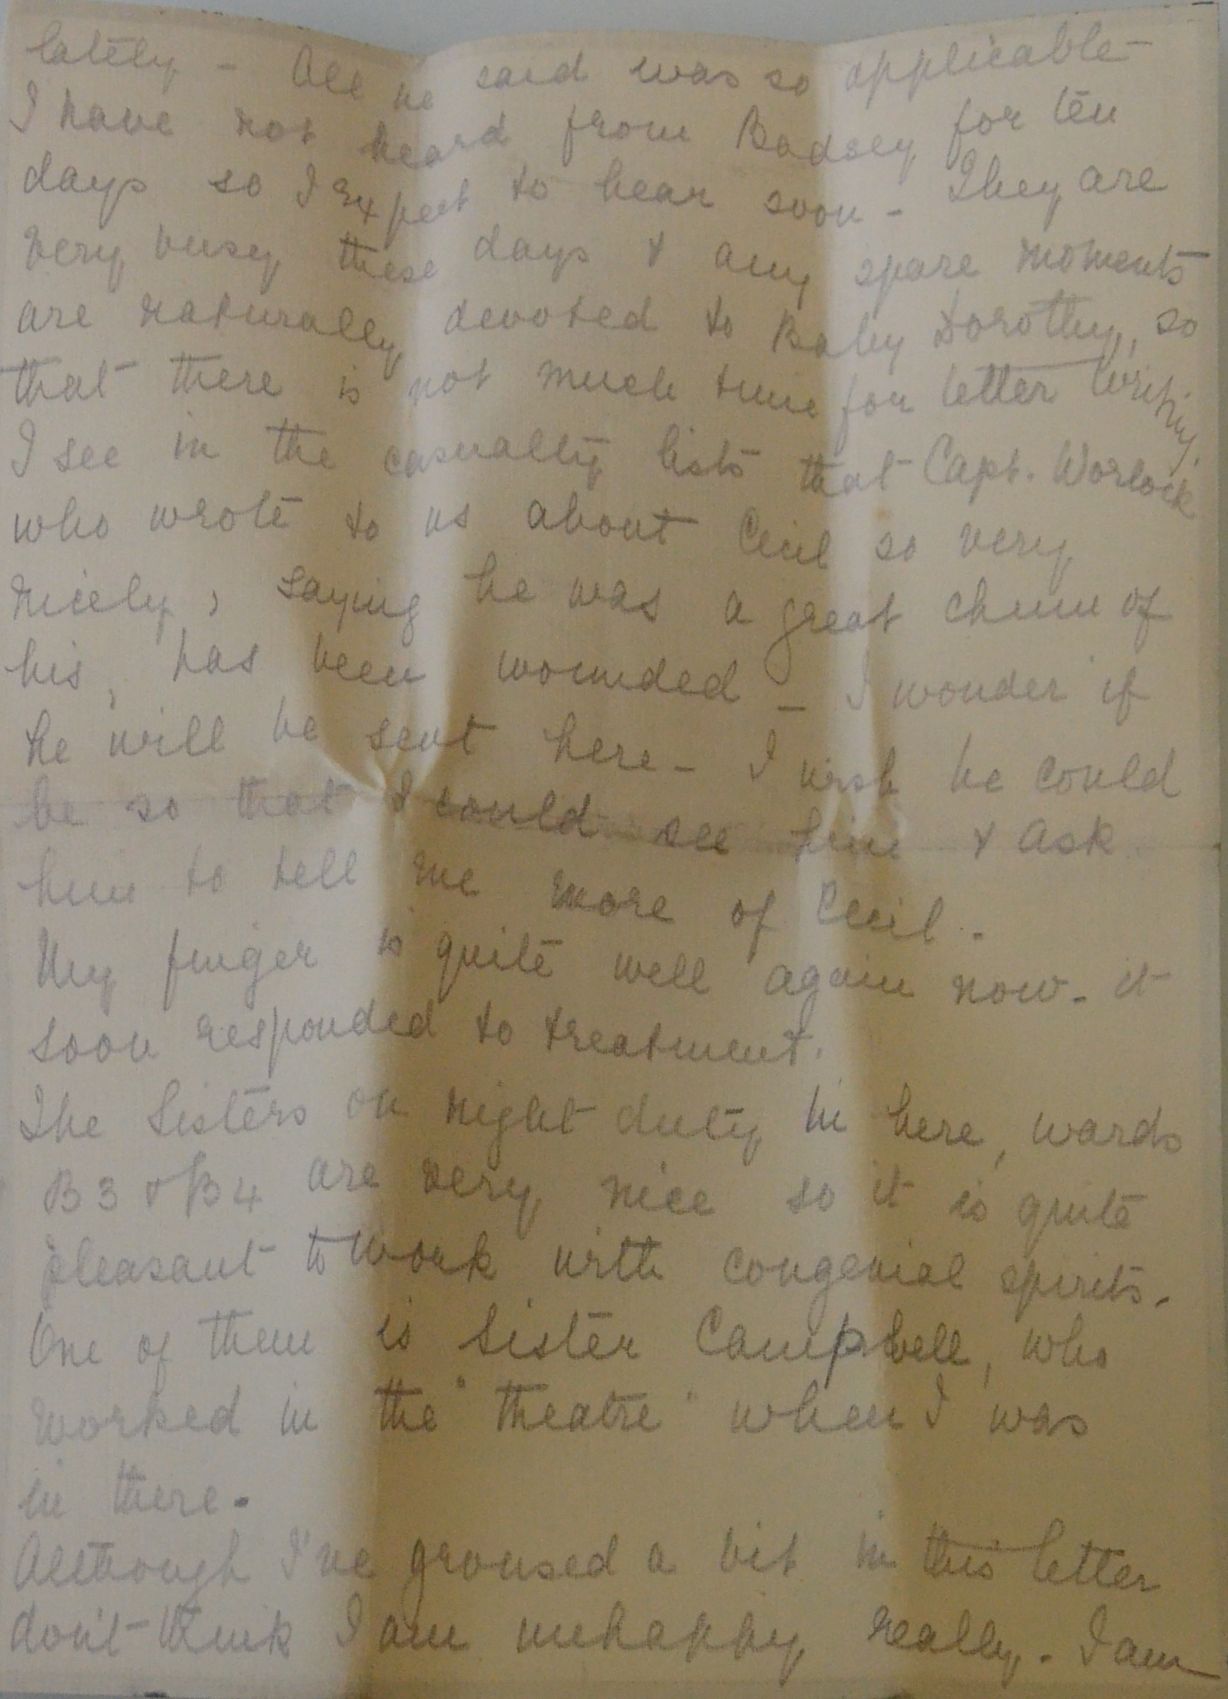 lately - All he said was so applicable -
I have not heard from Badsey for ten
days so I expect to hear soon - They are
very busy these days & any spare moments
are naturally devoted to Baby Dorothy, so
that there is not much time for letter writing.
I see in the casualty lists that Capt. Worlock
who wrote to us about Cecil so very
nicely, saying he was a great chum of
his, has been wounded - I wonder if
he will be sent here - I wish he could
be so that I could see him & ask
him to tell me more of Cecil.
My finger is quite well again now - it
soon responded to treatment.
The Sisters on night duty in here, wards
B3 & B4 are very nice so it is quite
pleasant to work with congenial spirits.
One of them is Sister Campbell, who
worked in the "theatre" when I was
in there.
Although I've groused a bit in this letter
don't think I am unhappy really. I am